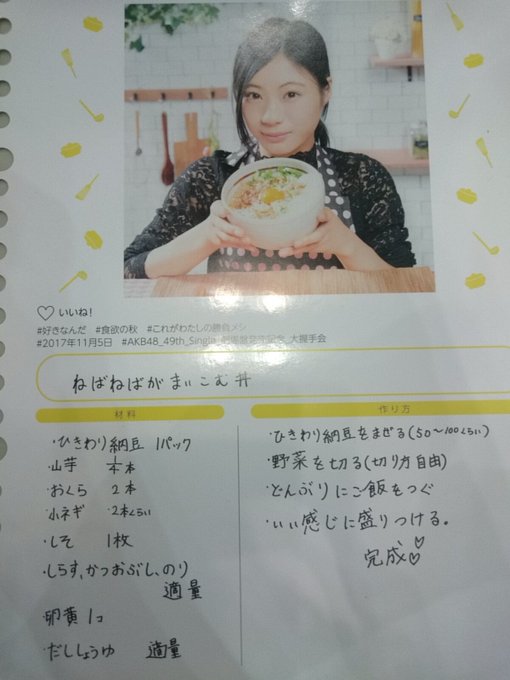 いいね!
#好きなんだ #食欲の秋 #これがわたしの勝負メシ
#2017年11月5日 #AKB48_49th_Single_劇場盤発売記念_大握手会
ねばねばがまいこむ丼
材料
・ひきわり納豆 1パック
・山芋 本
おくら 2本
・小ネギ ・2本くらい
・しそ 1枚
・しらす、かつおぶし、のり
適量
・卵黄 1コ
・だししょうゆ 適量
作り方
・ひきわり納豆をまぜる(50〜100くらい)
・野菜を切る(切り方自由)
・どんぶりにご飯をつぐ
・いい感じに盛りつける。
完成♡♡